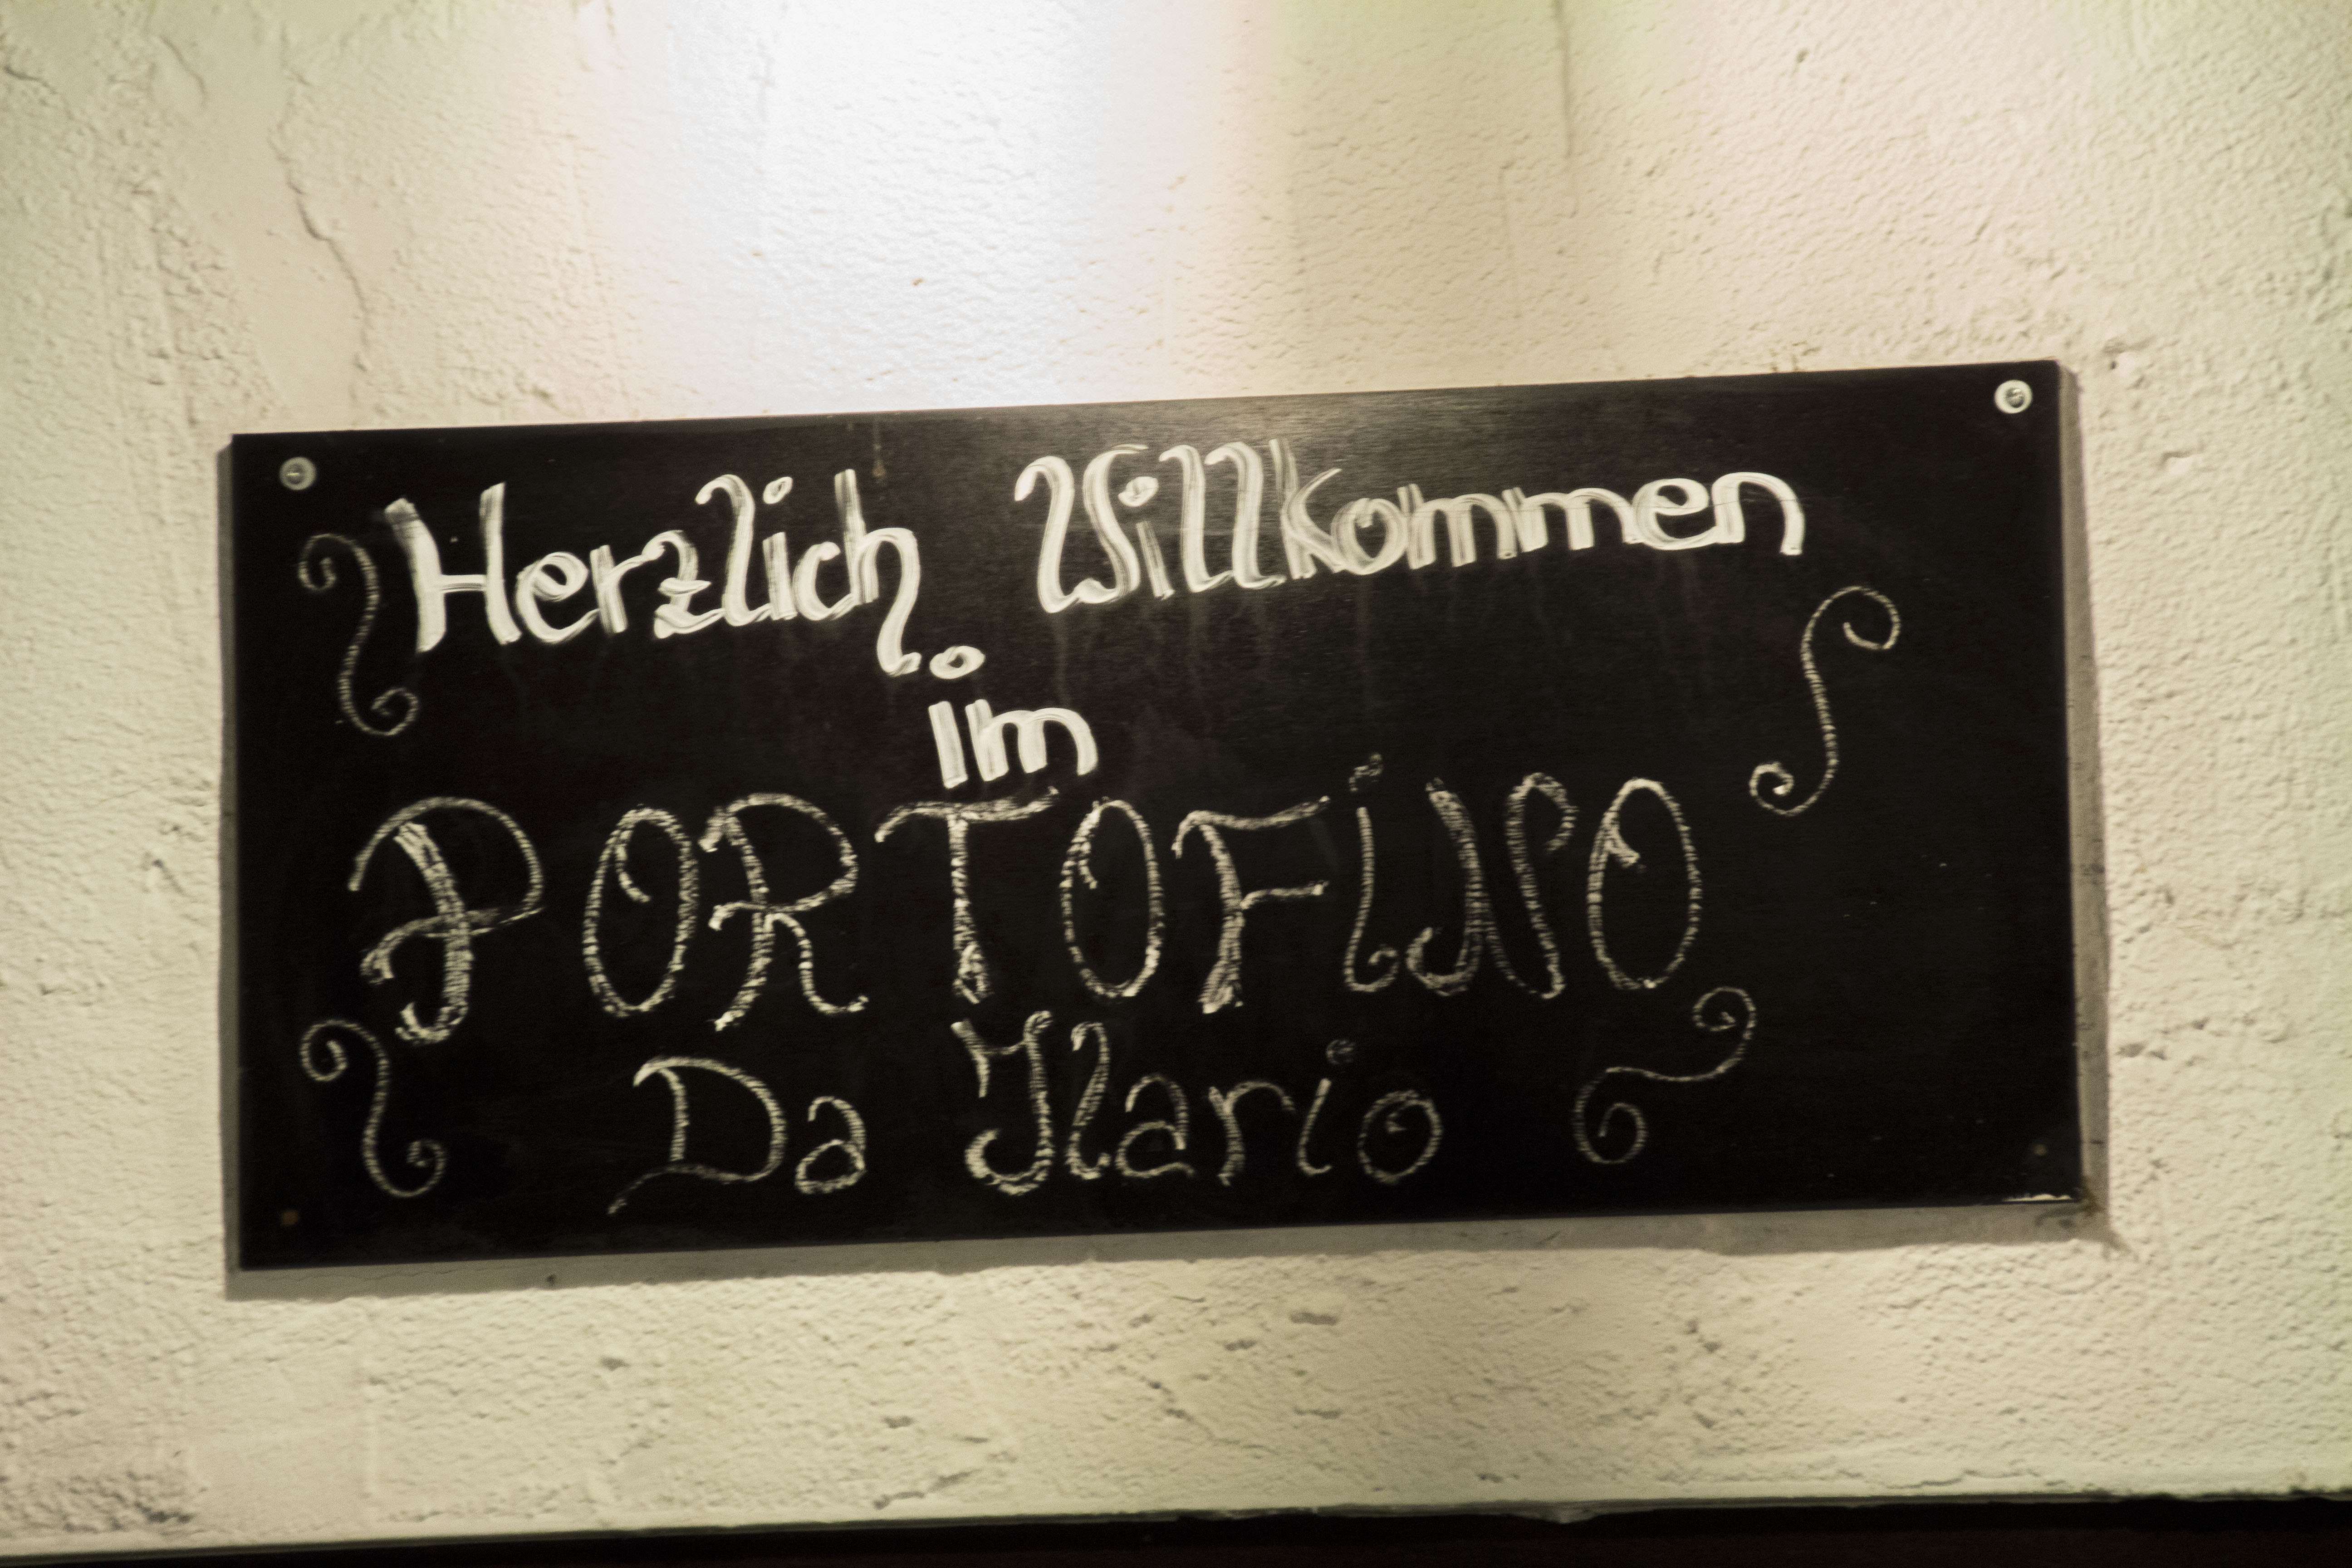 Herzlich Willkommen
im
PORTOFiNO
Da Ilario